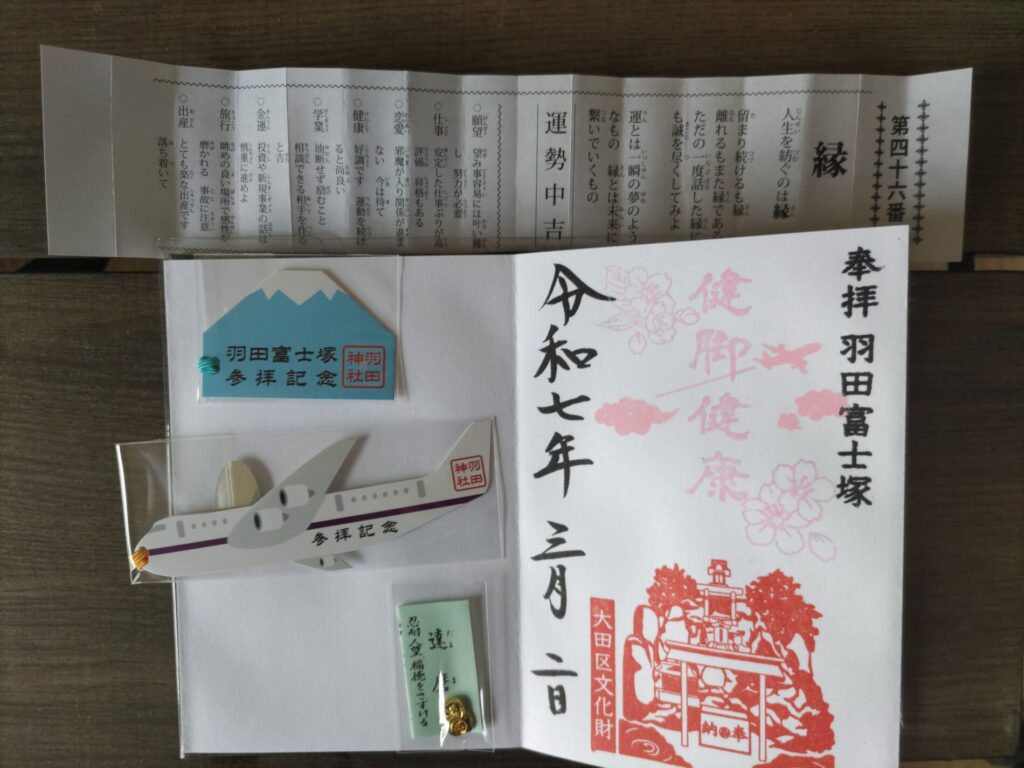 第四十六番
縁
人生を紡ぐのは縁
留まり続けるも縁
離れるもまた縁である
ただの一度話した縁に
も誠を尽くしてみよ
運とは一瞬の夢のよう
なもの 縁とは未来に
繋いでいくもの
運勢中吉
○願望 望み事容易には叶い難
し 努力が必要
○仕事 安定した仕事ぶりが高
評価 昇格もある
○恋愛 邪魔が入り関係が進ま
ない 今は待て
○健康 好調です 運動を続け
ると尚良い
○学業 油断せず励むこと
相談できる相手を作る
と吉
○金運 投資や新規事業の話は
慎重に進めよ
○旅行 眺めの良い場所で感性が
磨かれる 事故に注意
○出産 とても楽な出産です
落ち着いて
奉拝 羽田富士塚
健脚健康
令和七年 三月 二日
大田区文化財
奉納
羽田富士塚
参拝記念
羽田神社
参拝記念
羽田神社
達磨
忍耐人望福徳をさずける